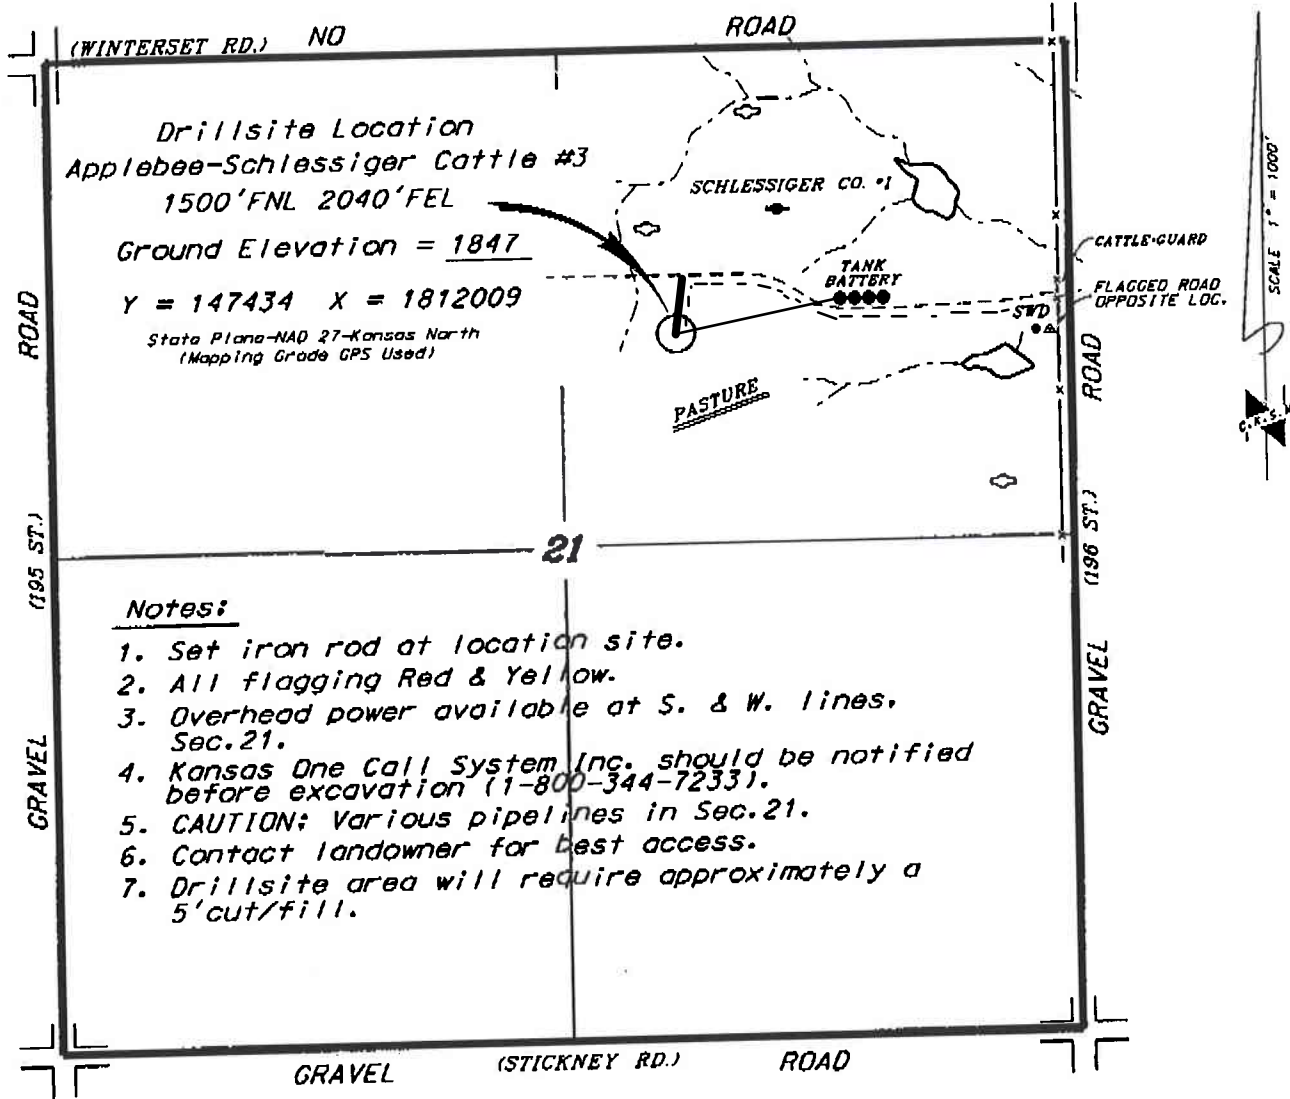 (WINTERSET RD.) NO ROAD
Drillsite Location
Applebee-Schlessiger Cattle #3
1500'FNL 2040'FEL
Ground Elevation = 1847
Y = 147434 X = 1812009
State Plane-NAD 27-Kansas North
(Mapping Grade GPS Used)
SCHLESSIGER CO. #1
TANK
BATTERY
SWD
CATTLE-GUARD
FLAGGED ROAD
OPPOSITE LOC.
PASTURE
SCALE 1" = 1000'
C.K.S.
ROAD
(195 ST.)
GRAVEL
ROAD
(196 ST.)
GRAVEL
21
Notes:
1. Set iron rod at location site.
2. All flagging Red & Yellow.
3. Overhead power available at S. & W. lines,
Sec.21.
4. Kansas One Call System Inc. should be notified
before excavation (1-800-344-7233).
5. CAUTION: Various pipelines in Sec.21.
6. Contact landowner for best access.
7. Drillsite area will require approximately a
5'cut/fill.
GRAVEL (STICKNEY RD.) ROAD